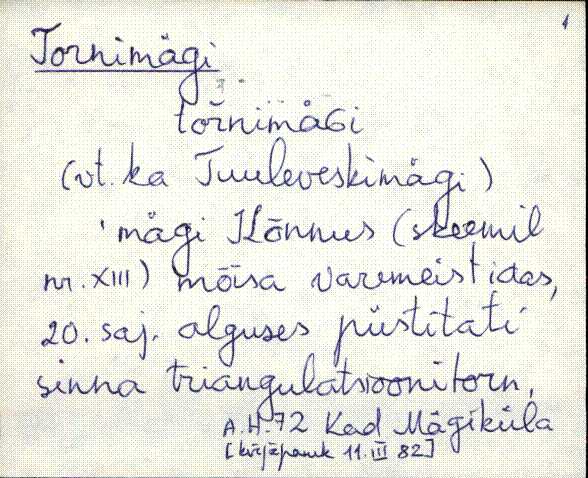 1
Tornimägi
tor̄nimäɢi
(vt. ka Tuuleveskimägi)
'mägi Kõnnus (skeemil
nr. XIII) mõisa varemeist idas,
20. saj. alguses püstitati
sinna triangulatsioonitorn,
A.H.72 Kad Mägiküla
[kirjapanek 11. III 82]